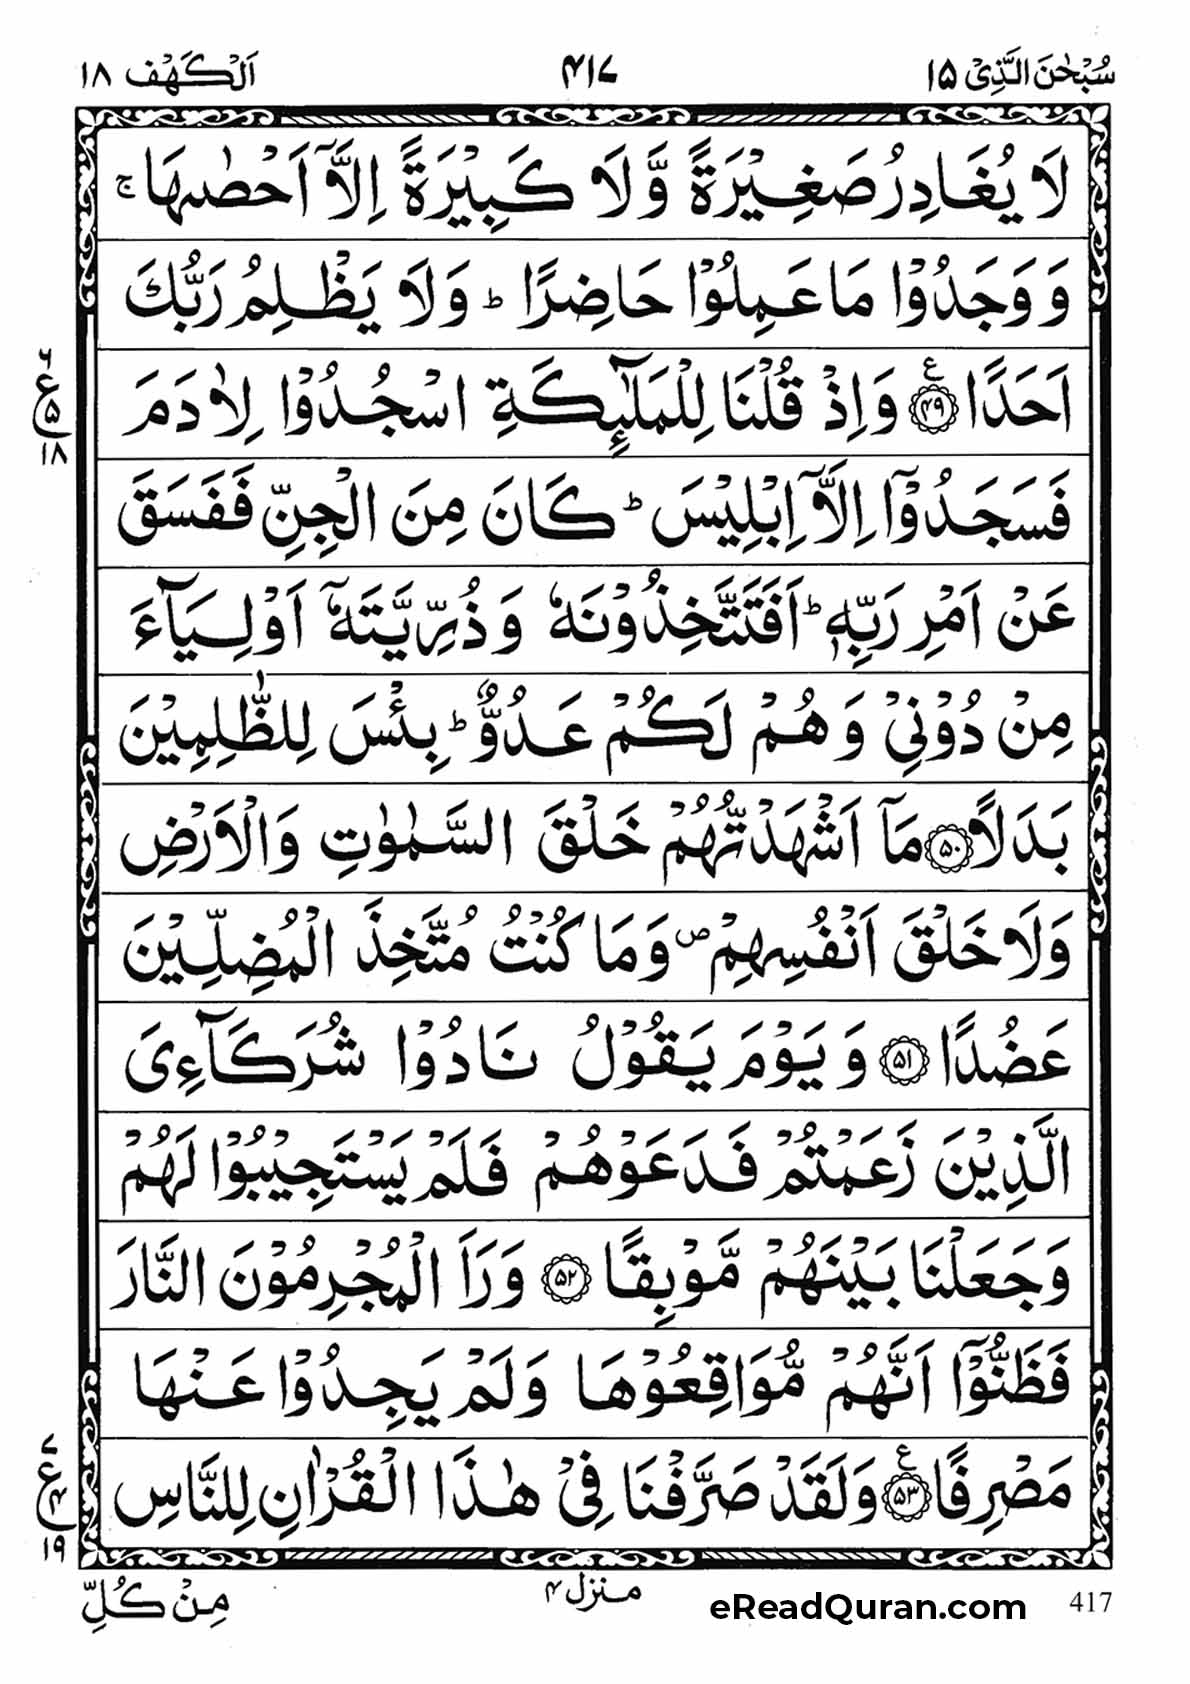 سُبْحٰنَ الَّذِیْۤ ۱۵
۴۱۷
اَلْكَهْف ۱۸
لَا یُغَادِرُ صَغِیْرَةً وَّلَا كَبِیْرَةً اِلَّاۤ اَحْصٰىهَا ۚ
وَ وَجَدُوْا مَا عَمِلُوْا حَاضِرًا ؕ وَلَا یَظْلِمُ رَبُّكَ
اَحَدًا ﴿۴۹﴾ ع وَاِذْ قُلْنَا لِلْمَلٰٓىِٕكَةِ اسْجُدُوْا لِاٰدَمَ
ع ۶ ۵ ۱۸
فَسَجَدُوْۤا اِلَّاۤ اِبْلِیْسَ ؕ كَانَ مِنَ الْجِنِّ فَفَسَقَ
عَنْ اَمْرِ رَبِّهٖ ؕ اَفَتَتَّخِذُوْنَهٗ وَ ذُرِّیَّتَهٗۤ اَوْلِیَآءَ
مِنْ دُوْنِیْ وَ هُمْ لَكُمْ عَدُوٌّ ؕ بِئْسَ لِلظّٰلِمِیْنَ
بَدَلًا ﴿۵۰﴾ مَاۤ اَشْهَدْتُّهُمْ خَلْقَ السَّمٰوٰتِ وَالْاَرْضِ
وَلَا خَلْقَ اَنْفُسِهِمْ ۪ وَمَا كُنْتُ مُتَّخِذَ الْمُضِلِّیْنَ
عَضُدًا ﴿۵۱﴾ وَ یَوْمَ یَقُوْلُ نَادُوْا شُرَكَآءِیَ
الَّذِیْنَ زَعَمْتُمْ فَدَعَوْهُمْ فَلَمْ یَسْتَجِیْبُوْا لَهُمْ
وَ جَعَلْنَا بَیْنَهُمْ مَّوْبِقًا ﴿۵۲﴾ وَ رَاَ الْمُجْرِمُوْنَ النَّارَ
فَظَنُّوْۤا اَنَّهُمْ مُّوَاقِعُوْهَا وَ لَمْ یَجِدُوْا عَنْهَا
مَصْرِفًا ﴿۵۳﴾ ع وَلَقَدْ صَرَّفْنَا فِیْ هٰذَا الْقُرْاٰنِ لِلنَّاسِ
ع ۷ ۴ ۱۹
417
eReadQuran.com
منزل ۴
مِنْ كُلِّ